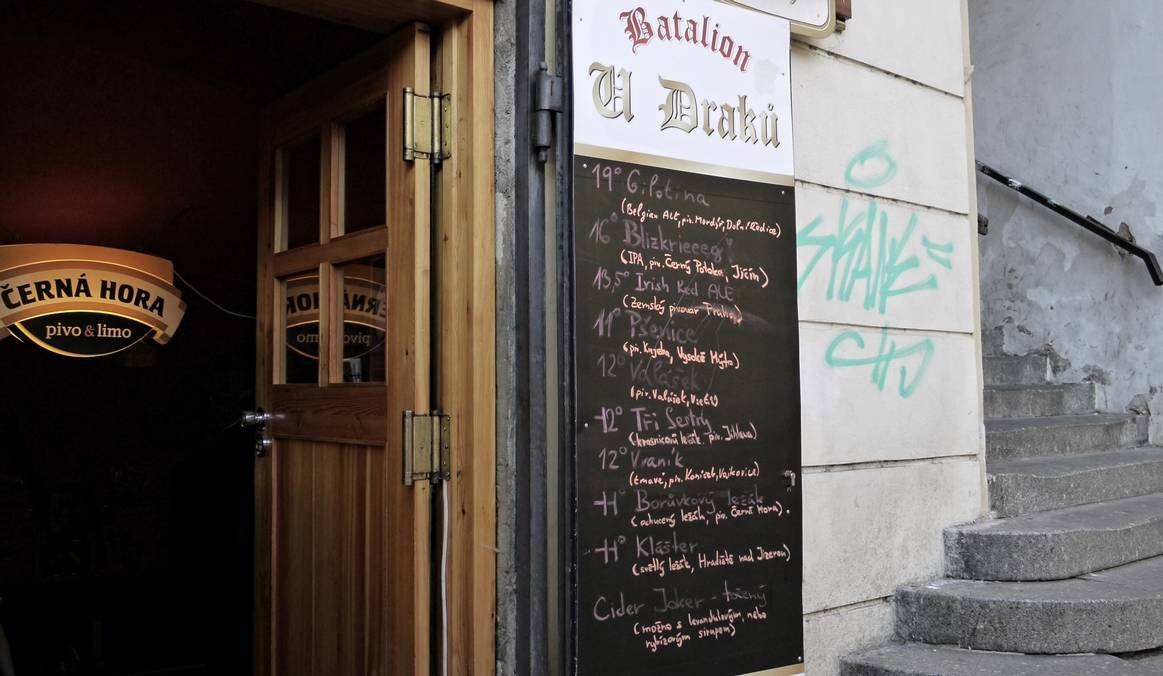 ČERNÁ HORA
pivo & limo
Batalion
U Draků
19° Gilotina
(Belgian ALE, piv. Mordýř, Dolní Ředice)
16° Blizkrieeeg!
(IPA, piv. Černý Potoka, Jičín)
13,5° Irish Red ALE
(Zemský pivovar Praha)
11° Pšenice
(piv. Kujeba, Vysoké Mýto)
12° Valášek
(piv. Valášek, Vsetín)
12° Tři Sestry
(krasnicový ležák, piv. Jihlava)
12° Vraník
(tmavé, piv. Koníček, Vojkovice)
11° Borůvkový ležák
(ochucený ležák, piv. Černá Hora).
11° Klášter
(světlý ležák, Hradiště nad Jizerou)
Cider Joker - točený
(možno s levandulovým, nebo
rybízovým sirupem)